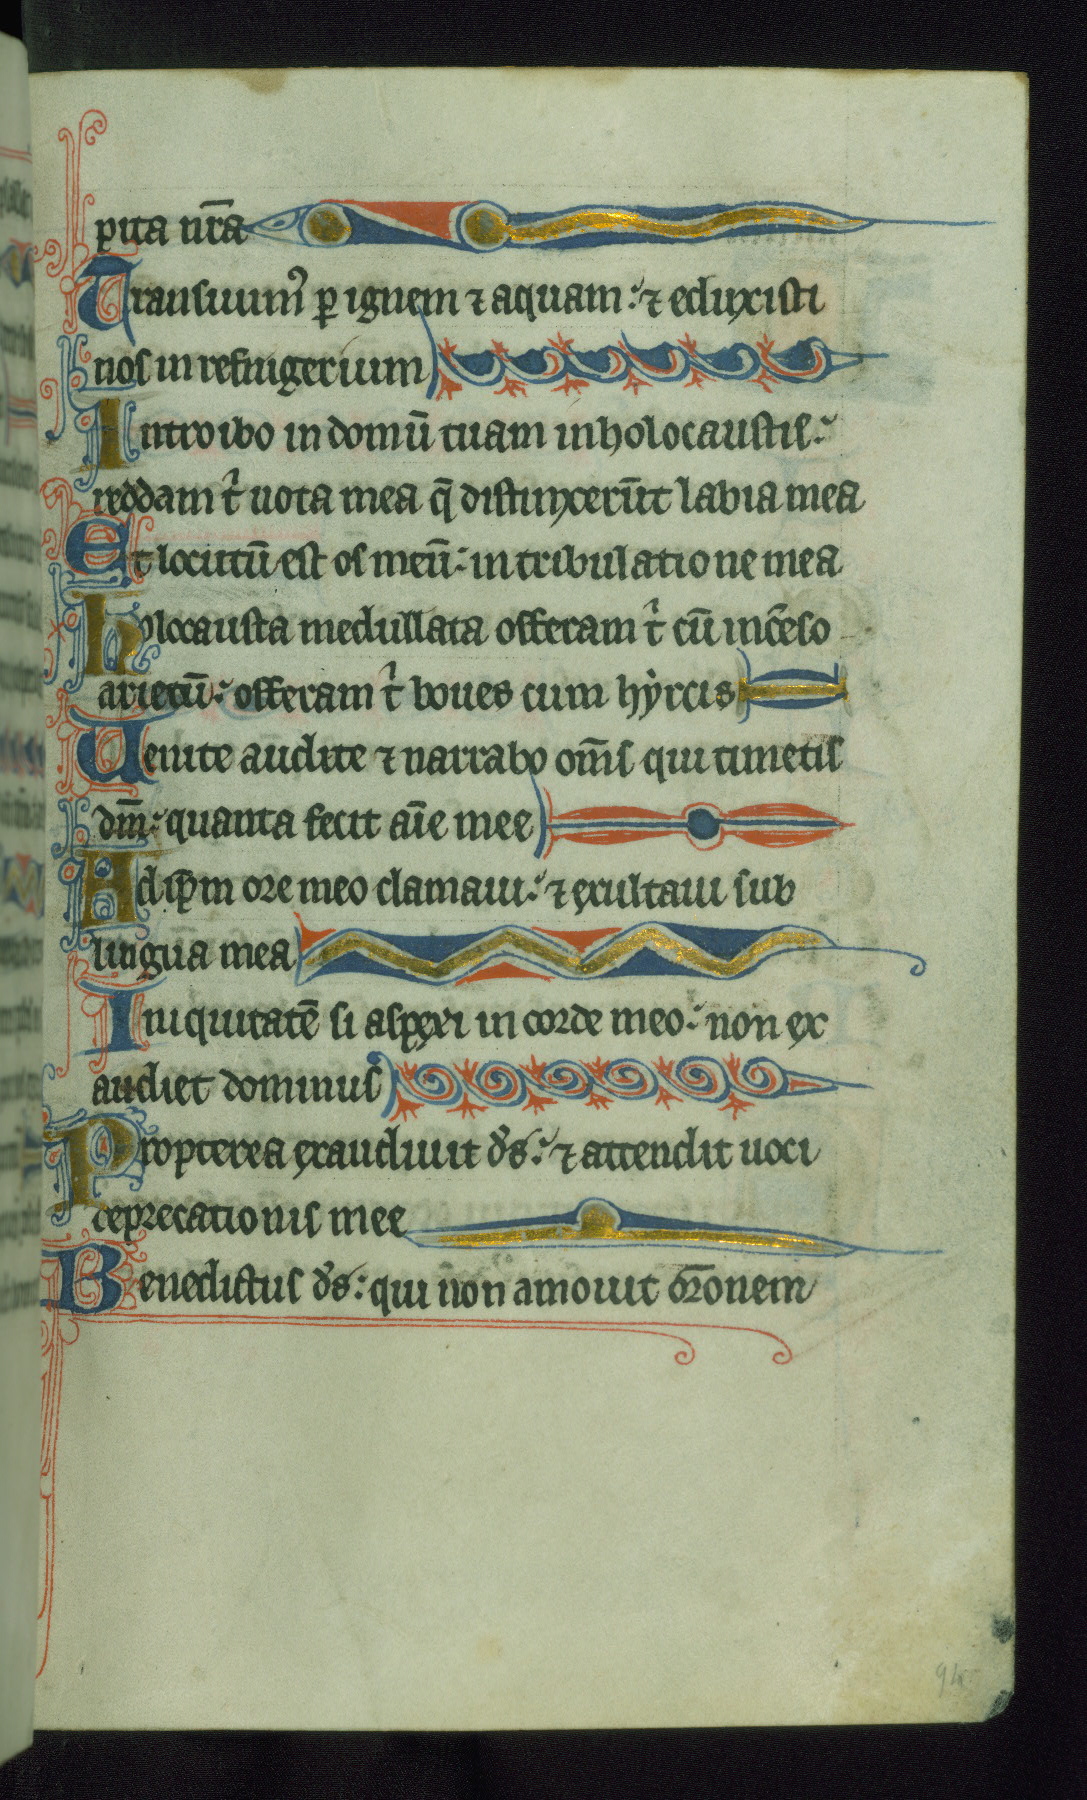 pita nr̄a
Transiuim᷒ ꝑ ignem ⁊ aquam: ⁊ eduxisti
nos in refrigerium
Introibo in domū tuam in holocaustis:
reddam t̓ uota mea q̄ distinxerūt labia mea
Et locutū est os meū: in tribulatione mea
holocausta medullata offeram t̓ cū incēso
arietū: offeram t̓ boues cum hyrcis
Uenite audite ⁊ narrabo om̄s qui timetis
dm̄: quanta fecit aīe mee
Ad ip̄m ore meo clamaui: ⁊ exultaui sub
lingua mea
Iniquitatē si aspexi in corde meo: non ex
audiet dominus
Propterea exaudiuit d̓s: ⁊ attendit uoci
deprecationis mee
Benedictus d̓s: qui non amouit or̄onem
94